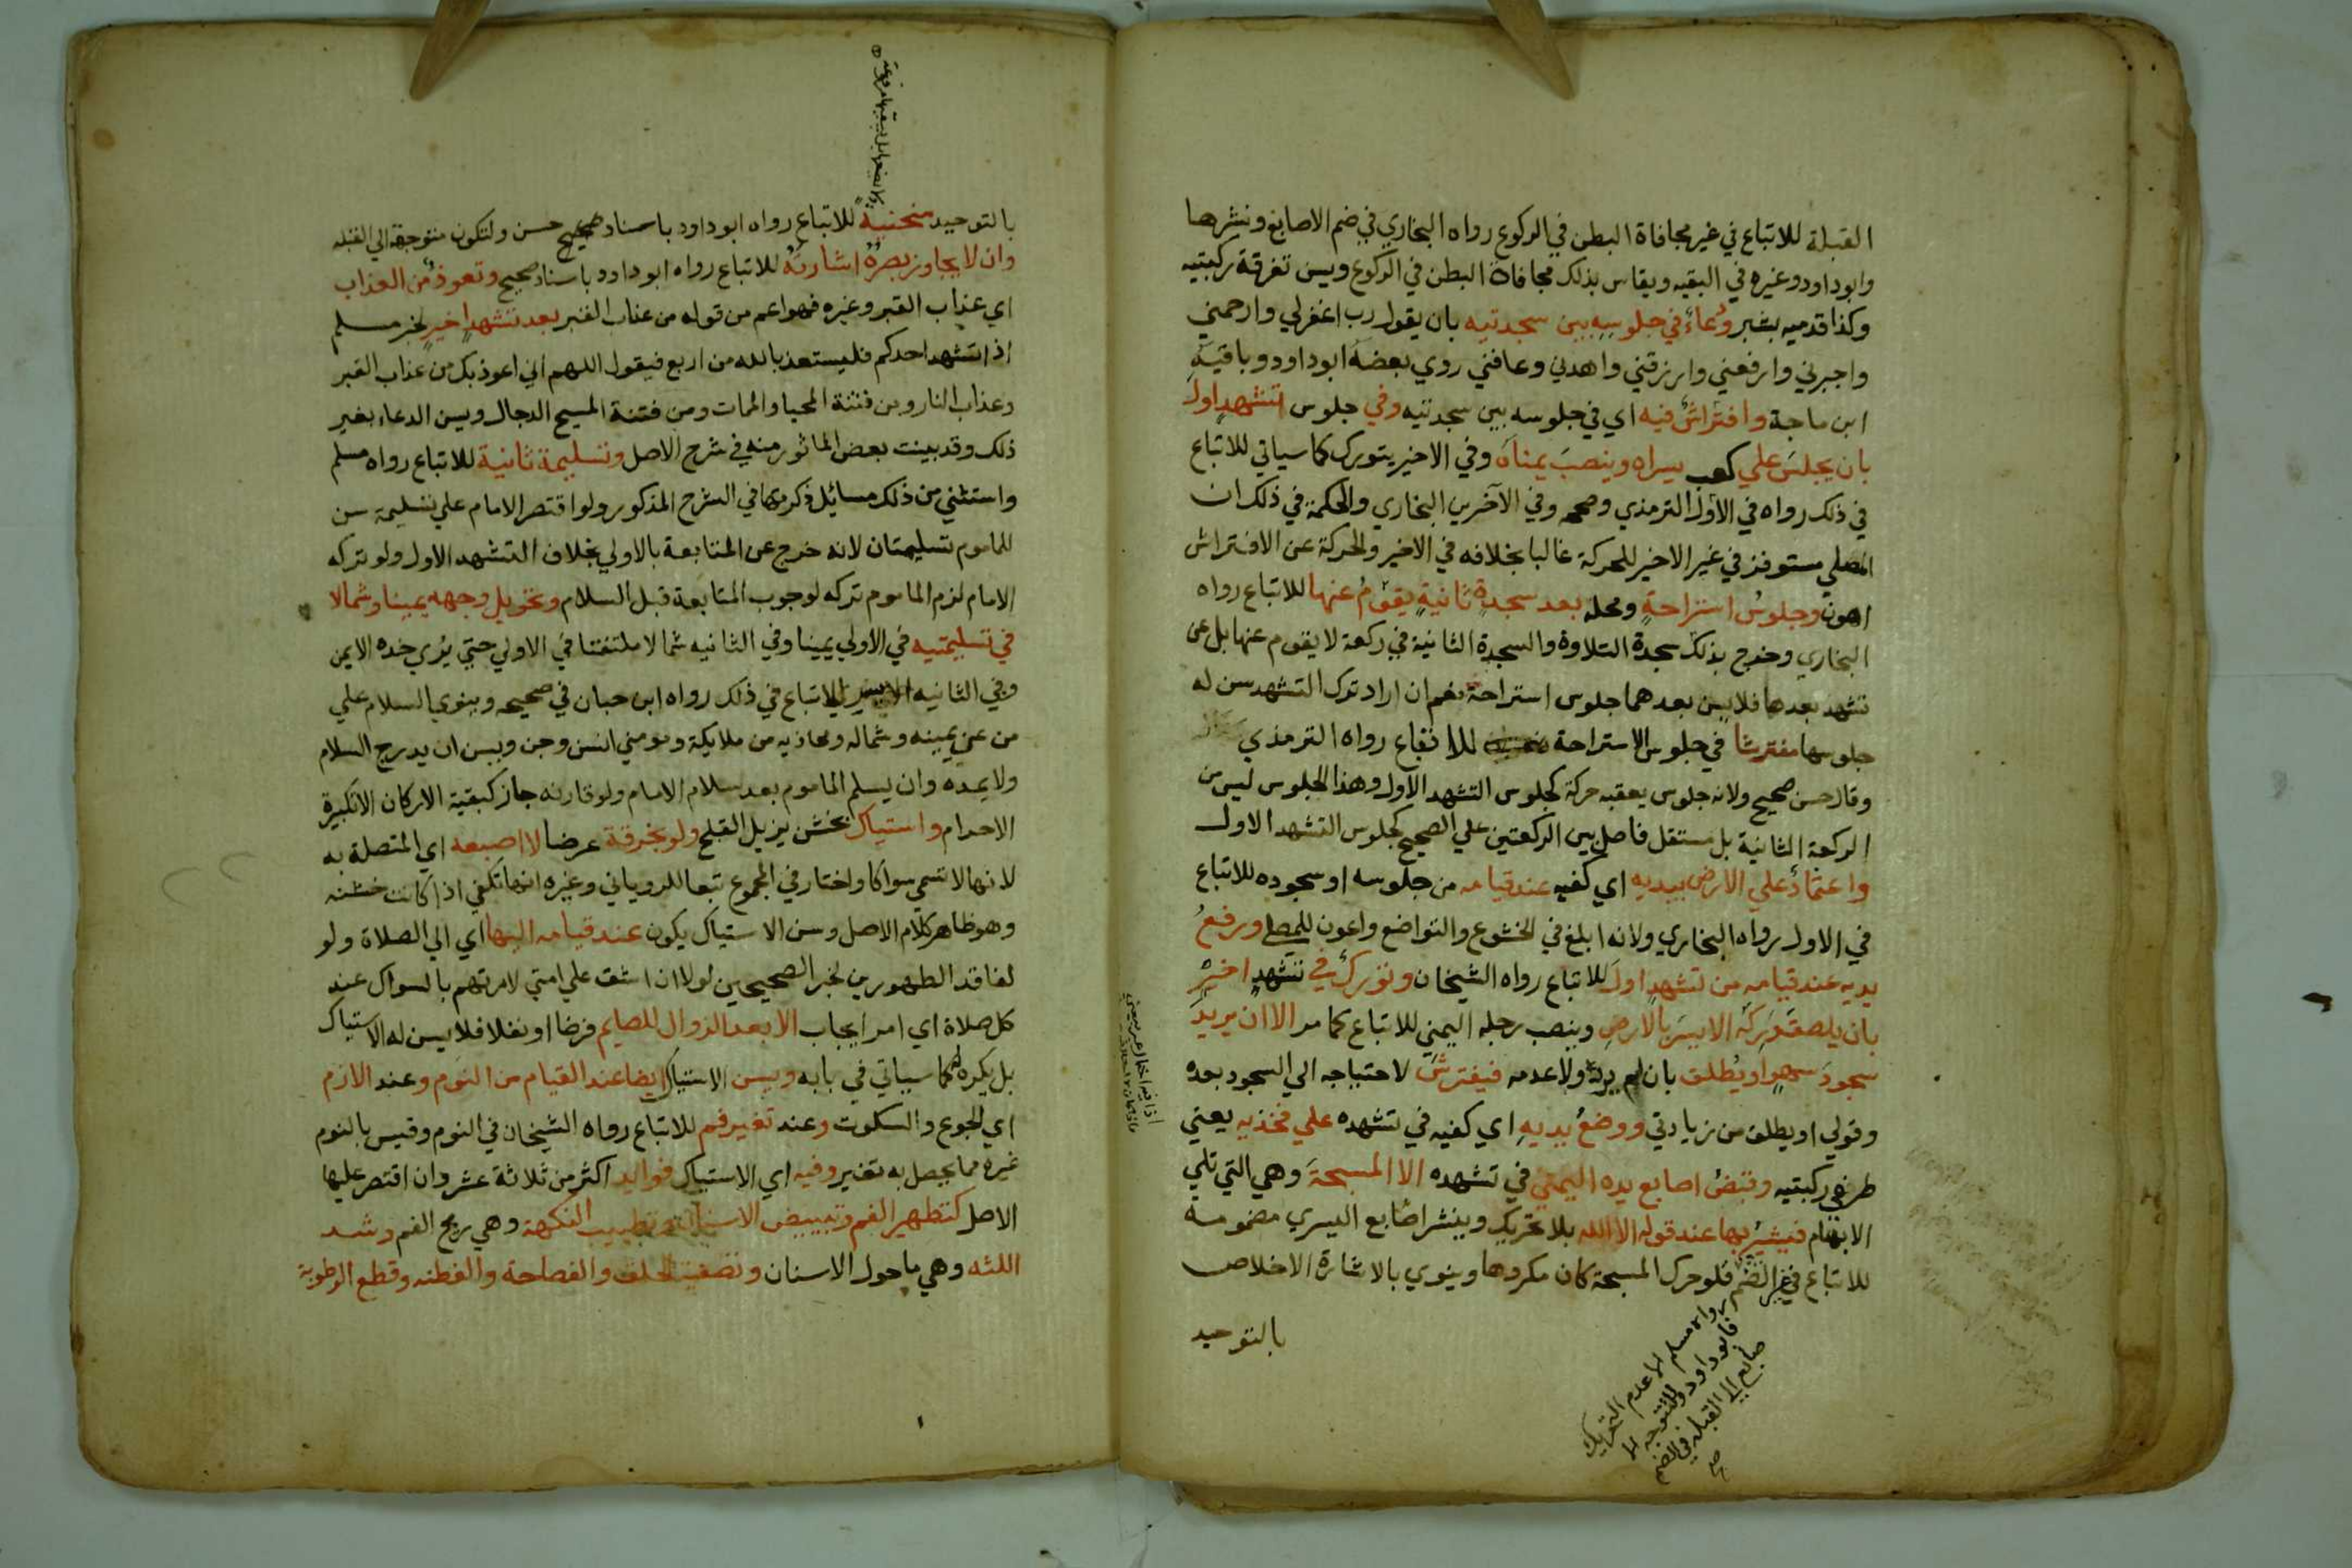 القبلة للاتباع في غير مجافاة البطن في الركوع رواه البخاري في ضم الاصابع ونشرها
وابوداود وغيره في البقيه ويقاس بذلك مجافاة البطن في الركوع ويسن تفرقة ركبتيه
وكذا قدميه بشبر ودُعاءٌ في جلوسِهِ بين سجدتيه بان يقول رب اغفرلي وارحمني
واجبرني وارفعني وارزقني واهدني وعافني روي بعضهَ ابوداود وباقيَهِ
ابن ماجة وافتراشٌ فيه اي في جلوسه بين سجدتيه وفي جلوس تشهدٍ اول
بان يجلسَ علي كعب يسراه وينصبَ يمناه وفي الاخير يتورك كما سياتي للاتباع
في ذلك رواه في الأول الترمذي وصححه وفي الآخرين البخاري والحكمة في ذلك ان
المصلي مستوفز في غير الاخير للحركة غالبا بخلافه في الاخير والحركة عن الافتراش
اهون وجلوسُ استراحةٍ ومحله بعد سجدةٍ ثانيةٍ يقومُ عنها للاتباع رواه
البخاري وخرج بذلك سجدة التلاوة والسجدة الثانية في ركعة لا يقوم عنها بل عن
تشهد بعدها فلا يسن بعدهما جلوس استراحة نعم ان اراد ترك التشهد سن له
جلوسها مفترشا في جلوس الاستراحة للاتباع رواه الترمذي
وقال حسن صحيح ولانه جلوس يعقبه حركة كجلوس التشهد الاول وهذا الجلوس ليس من
الركعة الثانية بل مستقل فاصل بين الركعتين علي الصحيح كجلوس التشهد الاول
واعتمادٌ علي الارض بيديه اي كفيه عند قيامه من جلوسه او سجوده للاتباع
في الاول رواه البخاري ولانه ابلغ في الخشوع والتواضع واعون للمصلي ورفعُ
يديه عند قيامه من تشهدٍ اول للاتباع رواه الشيخان وتوركٌ في تشهدٍ اخيرٍ
بان يلصقَ وَرِكَه الايسرَ بالارضِ وينصب رجله اليمني للاتباع كما مر الا ان يريدَ
سجودَ سهوٍ او يُطلق بان لم يرده ولا عدمه فيفترشَ لاحتياجه الي السجود بعده
وقولي او يطلق من زيادتي ووضعُ يديهِ اي كفيه في تشهده علي فخذيه يعني
طرفي ركبتيه وقبضُ اصابع يده اليمني في تشهده الا المسبحةَ وهي التي تلي
الابهام فيشيرُ بها عند قوله الا الله بلا تحريك وينشر اصابع اليسري مضمومة
للاتباع في غير الضم فلو حرك المسبحة كان مكروها وينوي بالاشارة الاخلاص
بالتوحيد
رواه مسلم الا عدم التحريك
فابو داود والتوجه الا
صابع الي القبلة في الضم
صح
بالتوحيد منحنيةً للاتباع رواه ابوداود باسناد صحيح حسن ولتكون متوجهة الي القبله
وان لا يجاوز بصرُهُ اشارتَهُ للاتباع رواه ابوداود باسناد صحيح وتعوذٌ من العذاب
اي عذاب القبر وغيره فهو اعم من قوله من عذاب القبر بعد تشهدٍ اخيرٍ لخبر مسلم
اذا تشهد احدكم فليستعذ بالله من اربع فيقول اللهم اني اعوذ بك من عذاب القبر
وعذاب النار ومن فتنة المحيا والممات ومن فتنة المسيح الدجال ويسن الدعاء بغير
ذلك وقد بينت بعض الماثور منه في شرح الاصل وتسليمة ثانية للاتباع رواه مسلم
واستثني من ذلك مسائل ذكرتها في الشرح المذكور ولو اقتصر الامام علي تسليمة سن
للماموم تسليمتان لانه خرج عن المتابعة بالاولي بخلاف التشهد الاول ولو تركه
الامام لزم الماموم تركه لوجوب المتابعة قبل السلام وتحويل وجهه يمينا وشمالا
في تسليمتيه في الاولي يمينا وفي الثانيه شمالا ملتفتا في الاولي حتي يُري خده الايمن
وفي الثانيه الايسر للاتباع في ذلك رواه ابن حبان في صحيحه وينوي السلام علي
من عن يمينه وشماله ومحاذيه من ملايكة ومومني انس وجن ويسن ان يدرج السلام
ولا يمده وان يسلم الماموم بعد سلام الامام ولو قارنه جاز كبقية الاركان الا تكبيرة
الاحرام واستياك بخشن يزيل القلح ولو بخرقة عرضا لا اصبعه اي المتصلة به
لانها لا تسمي سواكا واختار في المجموع تبعا للروياني وغيره انها تكفي اذا كانت خشنه
وهو ظاهر كلام الاصل وسن الاستياك يكون عند قيامه اليها اي الي الصلاة ولو
لفاقد الطهورين لخبر الصحيحين لولا ان اشق علي امتي لامرتهم بالسواك عند
كل صلاة اي امر ايجاب الا بعد الزوال للصايم فرضا او نفلا فلا يسن له الاستياك
بل يكره له كما سياتي في بابه ويسن الاستياك ايضا عند القيام من النوم وعند الازم
اي الجوع والسكوت وعند تغير فم للاتباع رواه الشيخان في النوم وقيس بالنوم
غيره مما يحصل به تغير وفيه اي الاستياك فوايد اكثر من ثلاثة عشر وان اقتصر عليها
الاصل كتطهير الفم وتبييض الاسنان وتطييب النكهة وهي ريح الفم وشد
اللثه وهي ما حول الاسنان وتصفية الحلق والفصاحة والفطنه وقطع الرطوبة